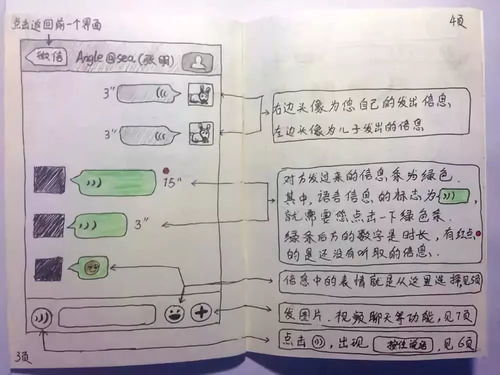 点击返回前一个界面
4页
微信
Angle@sea(张明)
3"
3"
15"
3"
3页
右边头像为您自己的发出信息、
左边头像为儿子发出的信息
对方发过来的信息条为绿色.
其中,语音信息的标志为
就需要您点击一下绿色条.
绿条后方的数字是时长,有红点
的是还没有听取的信息.
信息中的表情就是从这里选择见5页
发图片、视频聊天等功能,见7页
点击 ,出现 按住说话 ,见6页